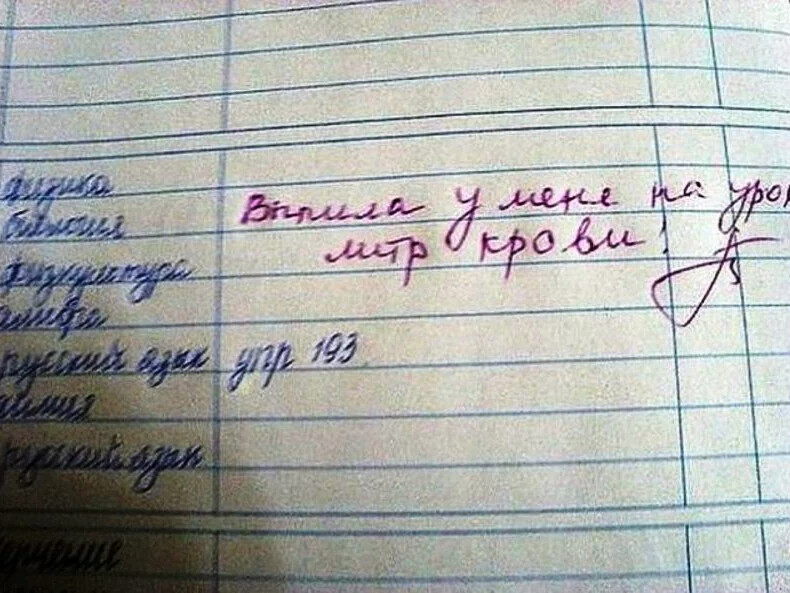 физика
биология
физкультура
алгебра
русский язык упр 193
химия
русский язык
черчение
Выпила у меня на уро
литр крови!